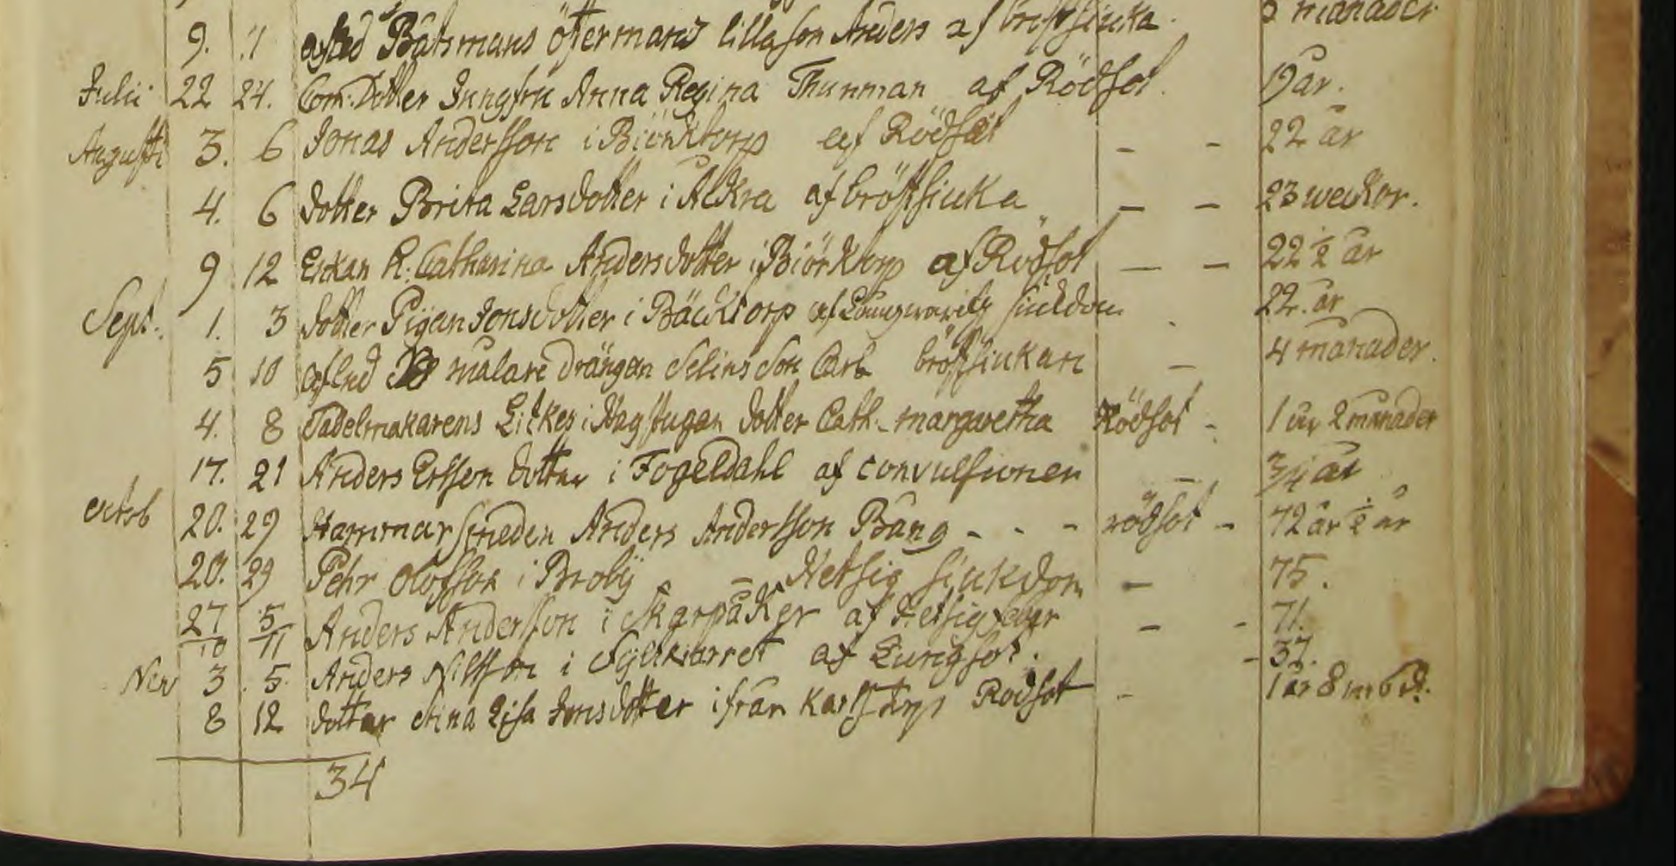 9. 11 afled Båtsmans öftermans lilla son Anders af bröstsiuka. månader
Julii 22 24. Com. Dotter Jungfru Anna Regina Thunman af Rödsot. 19 år.
Augusti 3. 6 Jonas Andersson i Biörktorp af Rödsot - - 22 år
4. 6 dotter Brita Larsdotter i Alkra af bröstsiuka - - 23 weckor.
9 12 Enkan H. Catharina Andersdotter i Biörktorp af Rödsot - - 22 ½ år
Sept. 1. 3 dotter Pigan Jonsdotter i Bäcktorp af siukdom 22. år
5 10 afled målare drängen Selins Son Carl bröstsiukan - 4 månader.
4. 8 Tadelmakarens Litkes i Hagstugan dotter Cath. margaretha Rödsot - 1 år 2 månader
17. 21 Anders Ersson dotter i Fogeldahl af convulsionen - 3/4 år
octob 20. 29 Hammarsmeden Anders Andersson Bång - - - rödsot - 72 år ½ år
20. 29 Pehr Olofsson i Broby - Hetsig siukdom - 75.
27/10 5/11 Anders Andersson i Skarpåker af Hetsig feber - - 71.
Nov 3 5. Anders Nilsson i af Lungsot. - 37.
8 12 dotter Stina Lisa Jonsdotter ifrån Karlstorp Rödsot - 1 år 8 m 6 d.
34